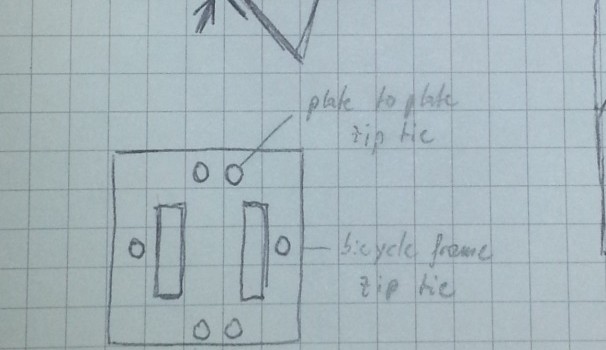 plate to plate
zip tie
bicycle frame
zip tie